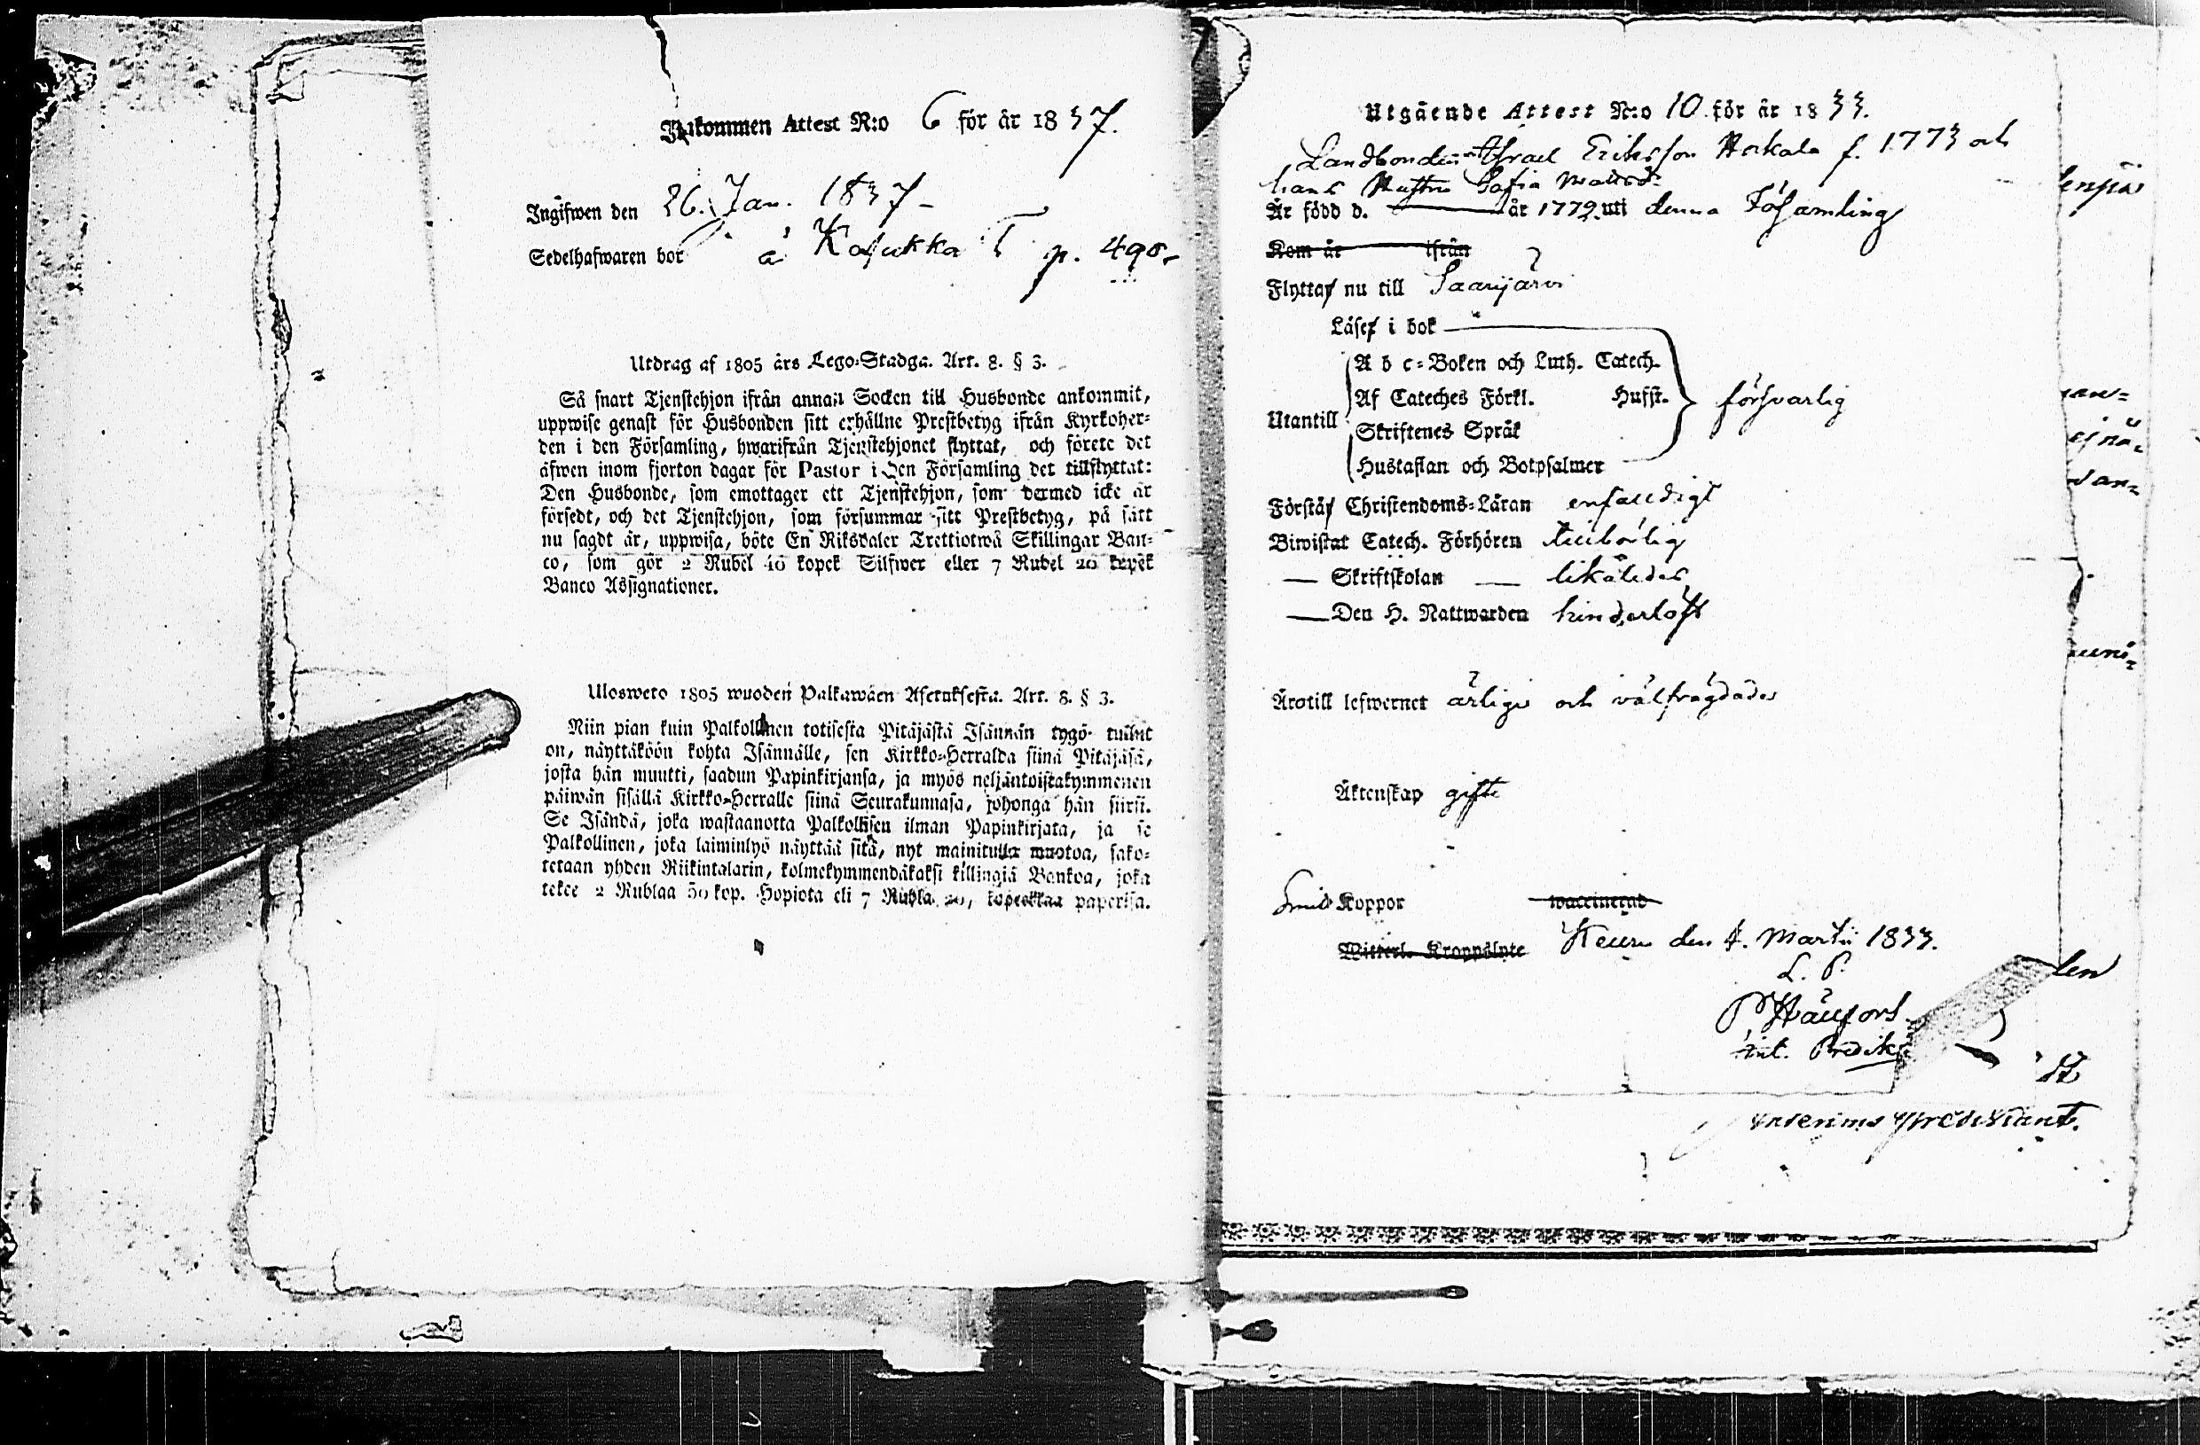 Inkommen Attest N:o 6 för år 1837.
Ingifwen den 26. Jan. 1837
Sedelhafwaren bor å Kasukka T p. 490.
Utdrag af 1805 års Lego-Stadga. Art. 8. § 3.
Så snart Tjenstehjon ifrån annan Socken till Husbonde ankommit,
uppwise genast för Husbonden sitt erhållne Prestbetyg ifrån Kyrkoher-
den i den Församling, hwarifrån Tjenstehjonet flyttat, och förete det
äfwen inom fjorton dagar för Pastor i den Församling det tillflyttat:
Den Husbonde, som emottager ett Tjenstehjon, som dermed icke är
försedt, och det Tjenstehjon, som försummar sitt Prestbetyg, på sätt
nu sagdt är, uppwisa, böte En Riksdaler Trettiotwå Skillingar Ban-
co, som gör 2 Rubel 40 kopek Silfwer eller 7 Rubel 20 kopek
Banco Assignationer.
Ulosweto 1805 wuoden Palkawäen Asetuksesta. Art. 8. § 3.
Niin pian kuin Palkollinen totisesta Pitäjästä Isännän tygö tullut
on, näyttäköön kohta Isännälle, sen Kirkko-Herralda siinä Pitäjäsä,
josta hän muutti, saadun Papinkirjansa, ja myös neljäntoistakymmenen
päiwän sisällä Kirkko-Herralle siinä Seurakunnasa, johonga hän siirsi.
Se Isändä, joka wastaanotta Palkollisen ilman Papinkirjata, ja se
Palkollinen, joka laiminlyö näyttää sitä, nyt mainitulla muotoa, sako-
tetaan yhden Riikintalarin, kolmekymmendäkaksi killingiä Bankoa, joka
tekee 2 Rublaa 50 kop. Hopiota eli 7 Rubla 20, kopeekkaa paperisa.
Utgående Attest N:o 10 för år 1833.
Landbonden Israel Eriksson Hokala f. 1773 och
hans Hustru Sofia Matsd:r
Är född d. år 1772 uti denna Församling
Kom år ifrån
Flyttar nu till Saarijärvi
Läser i bok
A b c-Boken och Luth. Catech.
Utantill
Af Cateches Förkl. Hufst.
försvarlig
Skriftenes Språk
Hustaflan och Botpsalmer
Förstår Christendoms-Läran enfalldigt
Biwistat Catech. Förhören tillbörlig
— Skriftskolan — likaledes
— Den H. Nattwarden hinderlöst
Ärotill lefwernet ärlige och välfrägdade
Äktenskap gifte
Koppor waccinerad
Witterl. Kroppslyte Keuru den 4. Martii 1833.
L. P.
int. Predik
Interims Predikant.